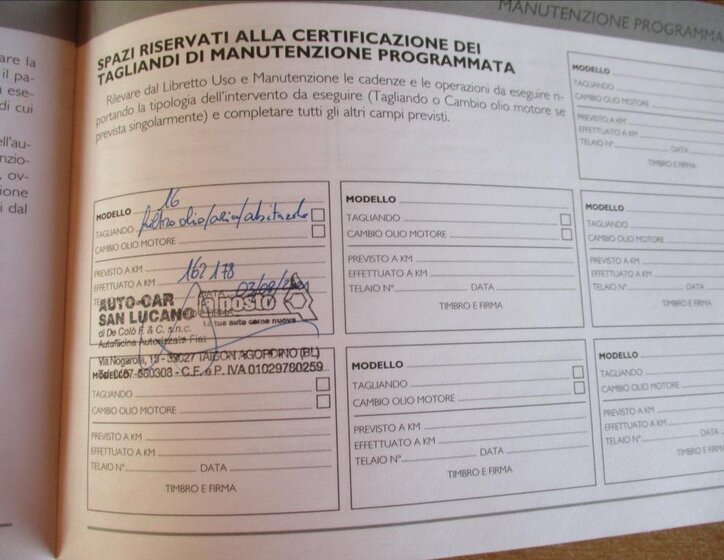 MANUTENZIONE PROGRAMMA
SPAZI RISERVATI ALLA CERTIFICAZIONE DEI
TAGLIANDI DI MANUTENZIONE PROGRAMMATA
Rilevare dal Libretto Uso e Manutenzione le cadenze e le operazioni da eseguire ri-
portando la tipologia dell'intervento da eseguire (Tagliando o Cambio olio motore se
prevista singolarmente) e completare tutti gli altri campi previsti.
are la
il pa-
ese-
di cui
ell'au-
nzio-
, ov-
ione
i dal
MODELLO
TAGLIANDO
CAMBIO OLIO MOTORE
PREVISTO A KM
EFFETTUATO A KM
TELAIO N° DATA
TIMBRO E FIRMA
MODELLO 16
TAGLIANDO filtro olio/aria/abitacolo
CAMBIO OLIO MOTORE
PREVISTO A KM
EFFETTUATO A KM 162178
AUTO-CAR
SAN LUCANO
di De Colò F. & C. s.n.c.
Autofficina Autorizzata Fiat
a posto
La tua auto come nuova
Via Nogarola, 13 - 32027 TAIBON AGORDINO (BL)
Tel. 0437-660308 - C.F. e P. IVA 01029780259
MODELLO
TAGLIANDO
CAMBIO OLIO MOTORE
PREVISTO A KM
EFFETTUATO A KM
TELAIO N° DATA
TIMBRO E FIRMA
MODELLO
TAGLIANDO
CAMBIO OLIO MOTORE
PREVISTO A KM
EFFETTUATO A KM
TELAIO N° DATA
TIMBRO E FIRMA
MODELLO
TAGLIANDO
CAMBIO OLIO MOTORE
PREVISTO A KM
EFFETTUATO A KM
TELAIO N° DATA
TIMBRO E FIRMA
MODELLO
TAGLIANDO
CAMBIO OLIO MOTORE
PREVISTO A KM
EFFETTUATO A KM
TELAIO N° DATA
TIMBRO E FIRMA
MODELLO
TAGLIANDO
CAMBIO OLIO MOTORE
PREVISTO A KM
EFFETTUATO A KM
TELAIO N° DATA
TIMBRO E FIRMA